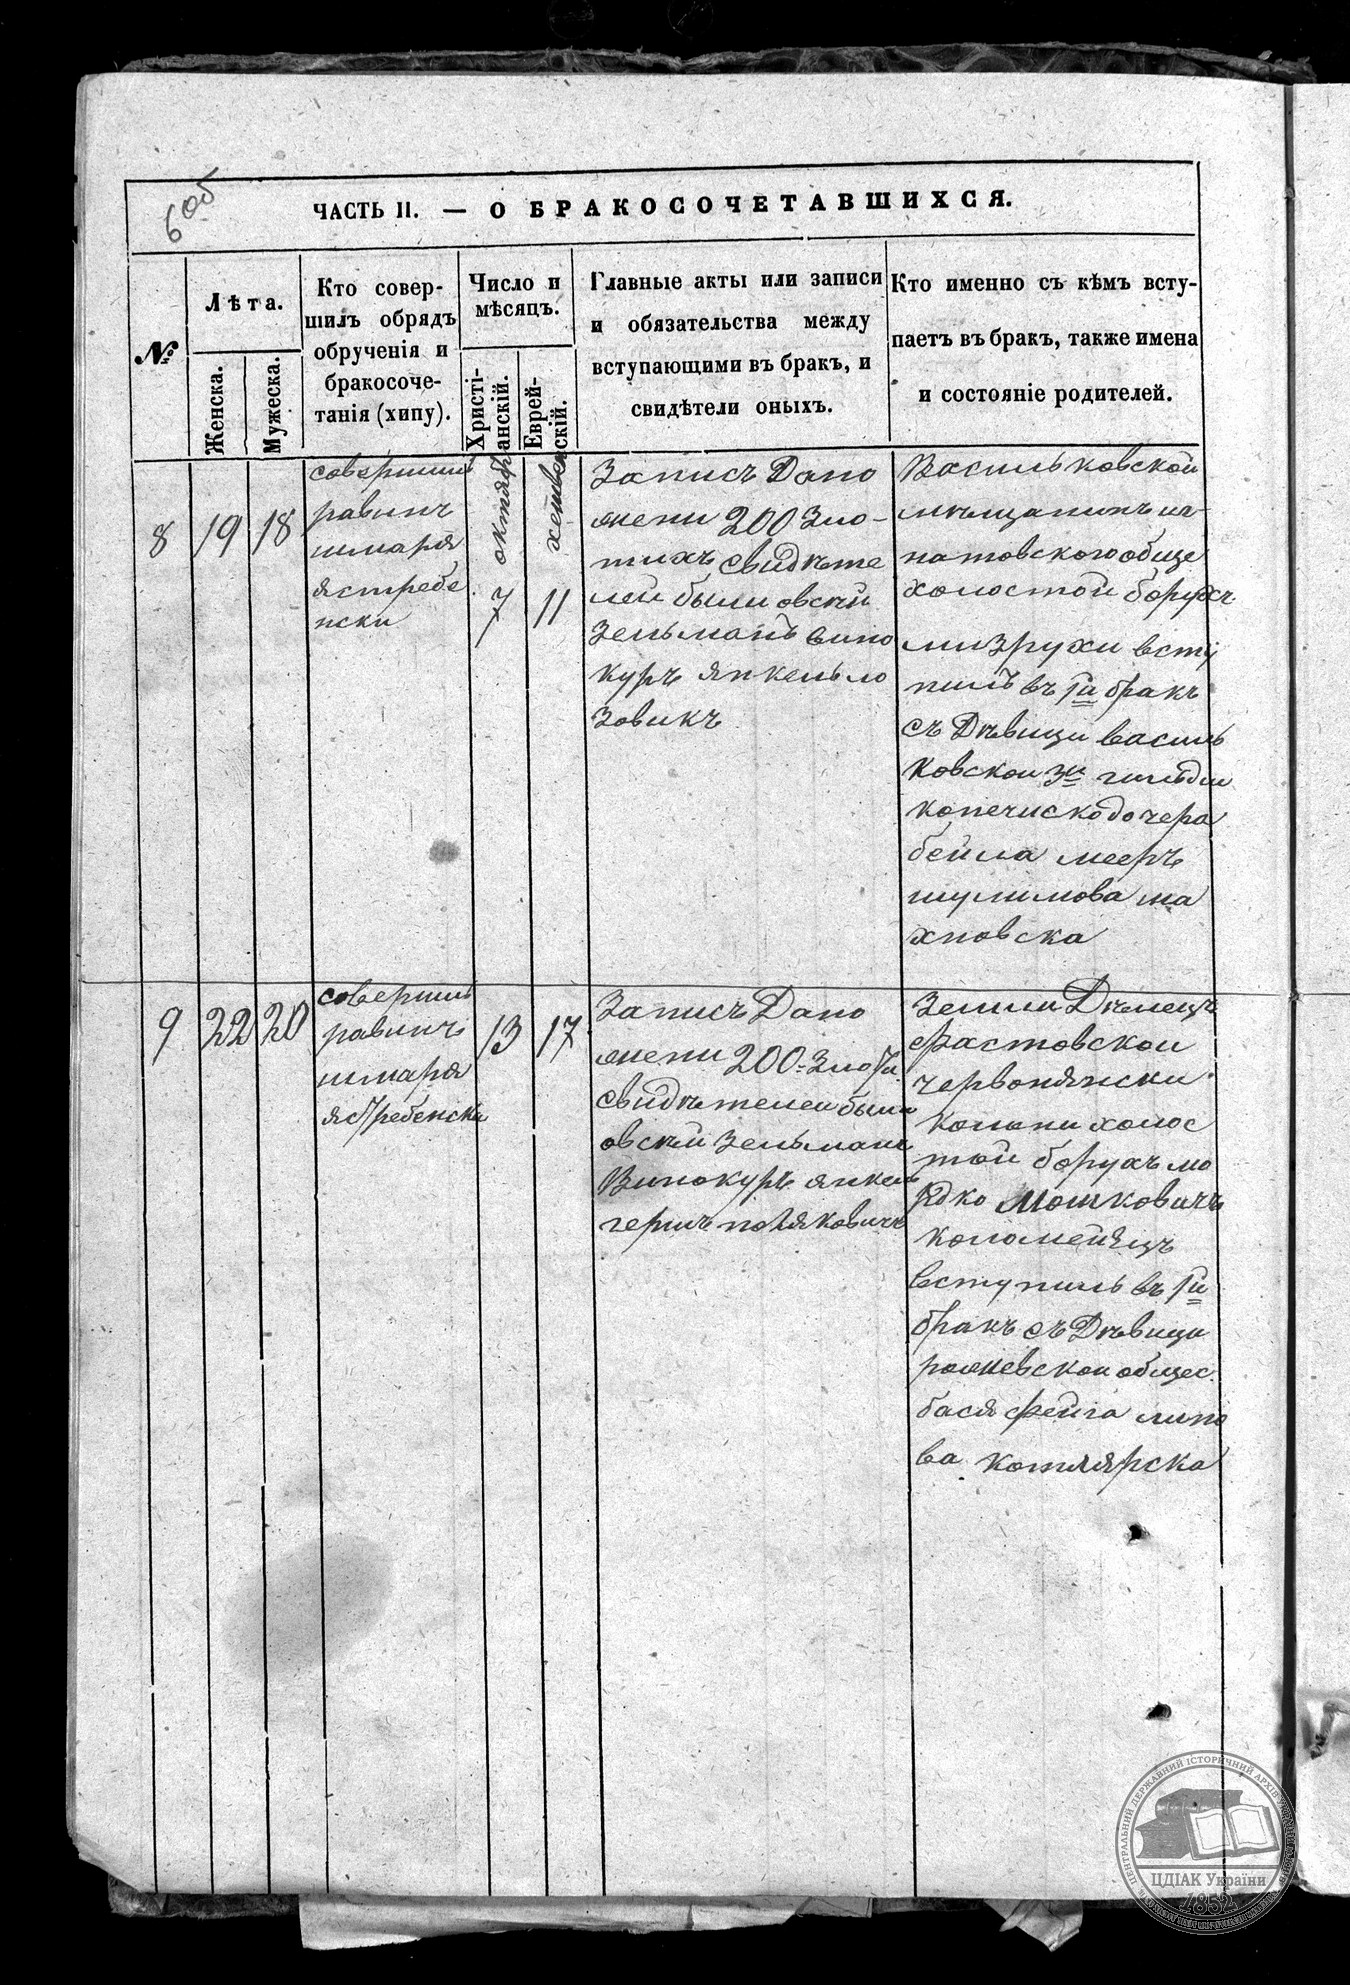 6 об
ЧАСТЬ II. — О БРАКОСОЧЕТАВШИХСЯ.
№
Лѣта.
Женска.
Мужеска.
Кто совер-
шилъ обрядъ
обрученія и
бракосоче-
танія (хипу).
Число и
мѣсяцъ.
Христі-
анскій.
Еврей-
скій.
Главные акты или записи
и обязательства между
вступающими въ бракъ, и
свидѣтели оныхъ.
Кто именно съ кѣмъ всту-
паетъ въ бракъ, также имена
и состояніе родителей.
8
19
18
совершил
равинъ
шмаря
ястребе
нски
октября
7
хешвен
11
Запись Дано
жени 200 Зло-
тихъ свидѣте
лей были овсѣй
Зельманъ вино
куръ янкель ло
зовикъ
Васильковской
мѣщанинъ иг-
натовского обще
холостой борухъ
мизрухи всту
пилъ въ 1й бракъ
съ Дѣвици василь
ковской 3й гильдии
копечиско дочера
бейла мееръ
шулимова ма
хновска
9
22
20
совершил
равинъ
шмаря
ястребенски
13
17
Запись Дано
жени 200 = Злоти
свидѣтелей были
овсѣй зельманъ
Винокуръ янкель
гершъ поляковичъ
Земли Дѣлецъ
фастовской
червонянски
колони холос
той борухъ мо
рдко Мошковичъ
коломеецъ
вступилъ въ 1й
бракъ съ Дѣвици
рожевской общес.
бася фейга липо
ва котлярска
ЦЕНТРАЛЬНИЙ ДЕРЖАВНИЙ ІСТОРИЧНИЙ АРХІВ УКРАЇНИ
ЦДІАК України
1852